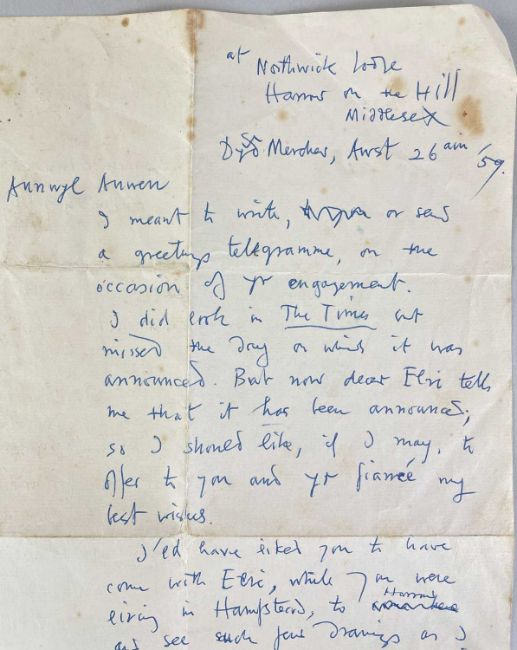 at Northwick Lodge
Harrow on the Hill
Middlesex
Dydd Mercher, Awst 26 ain '59.
Annwyl Anwen
I meant to write, or send
a greetings telegramme, on the
occasion of yr engagement.
I did look in The Times but
missed the day on which it was
announced. But now dear Elri tells
me that it has been announced;
so I should like, if I may, to
offer to you and yr fiancée my
best wishes.
I'ed have liked you to have
come with Elri, while you were
living in Hampstead, to Harrow
and see such few drawings as I